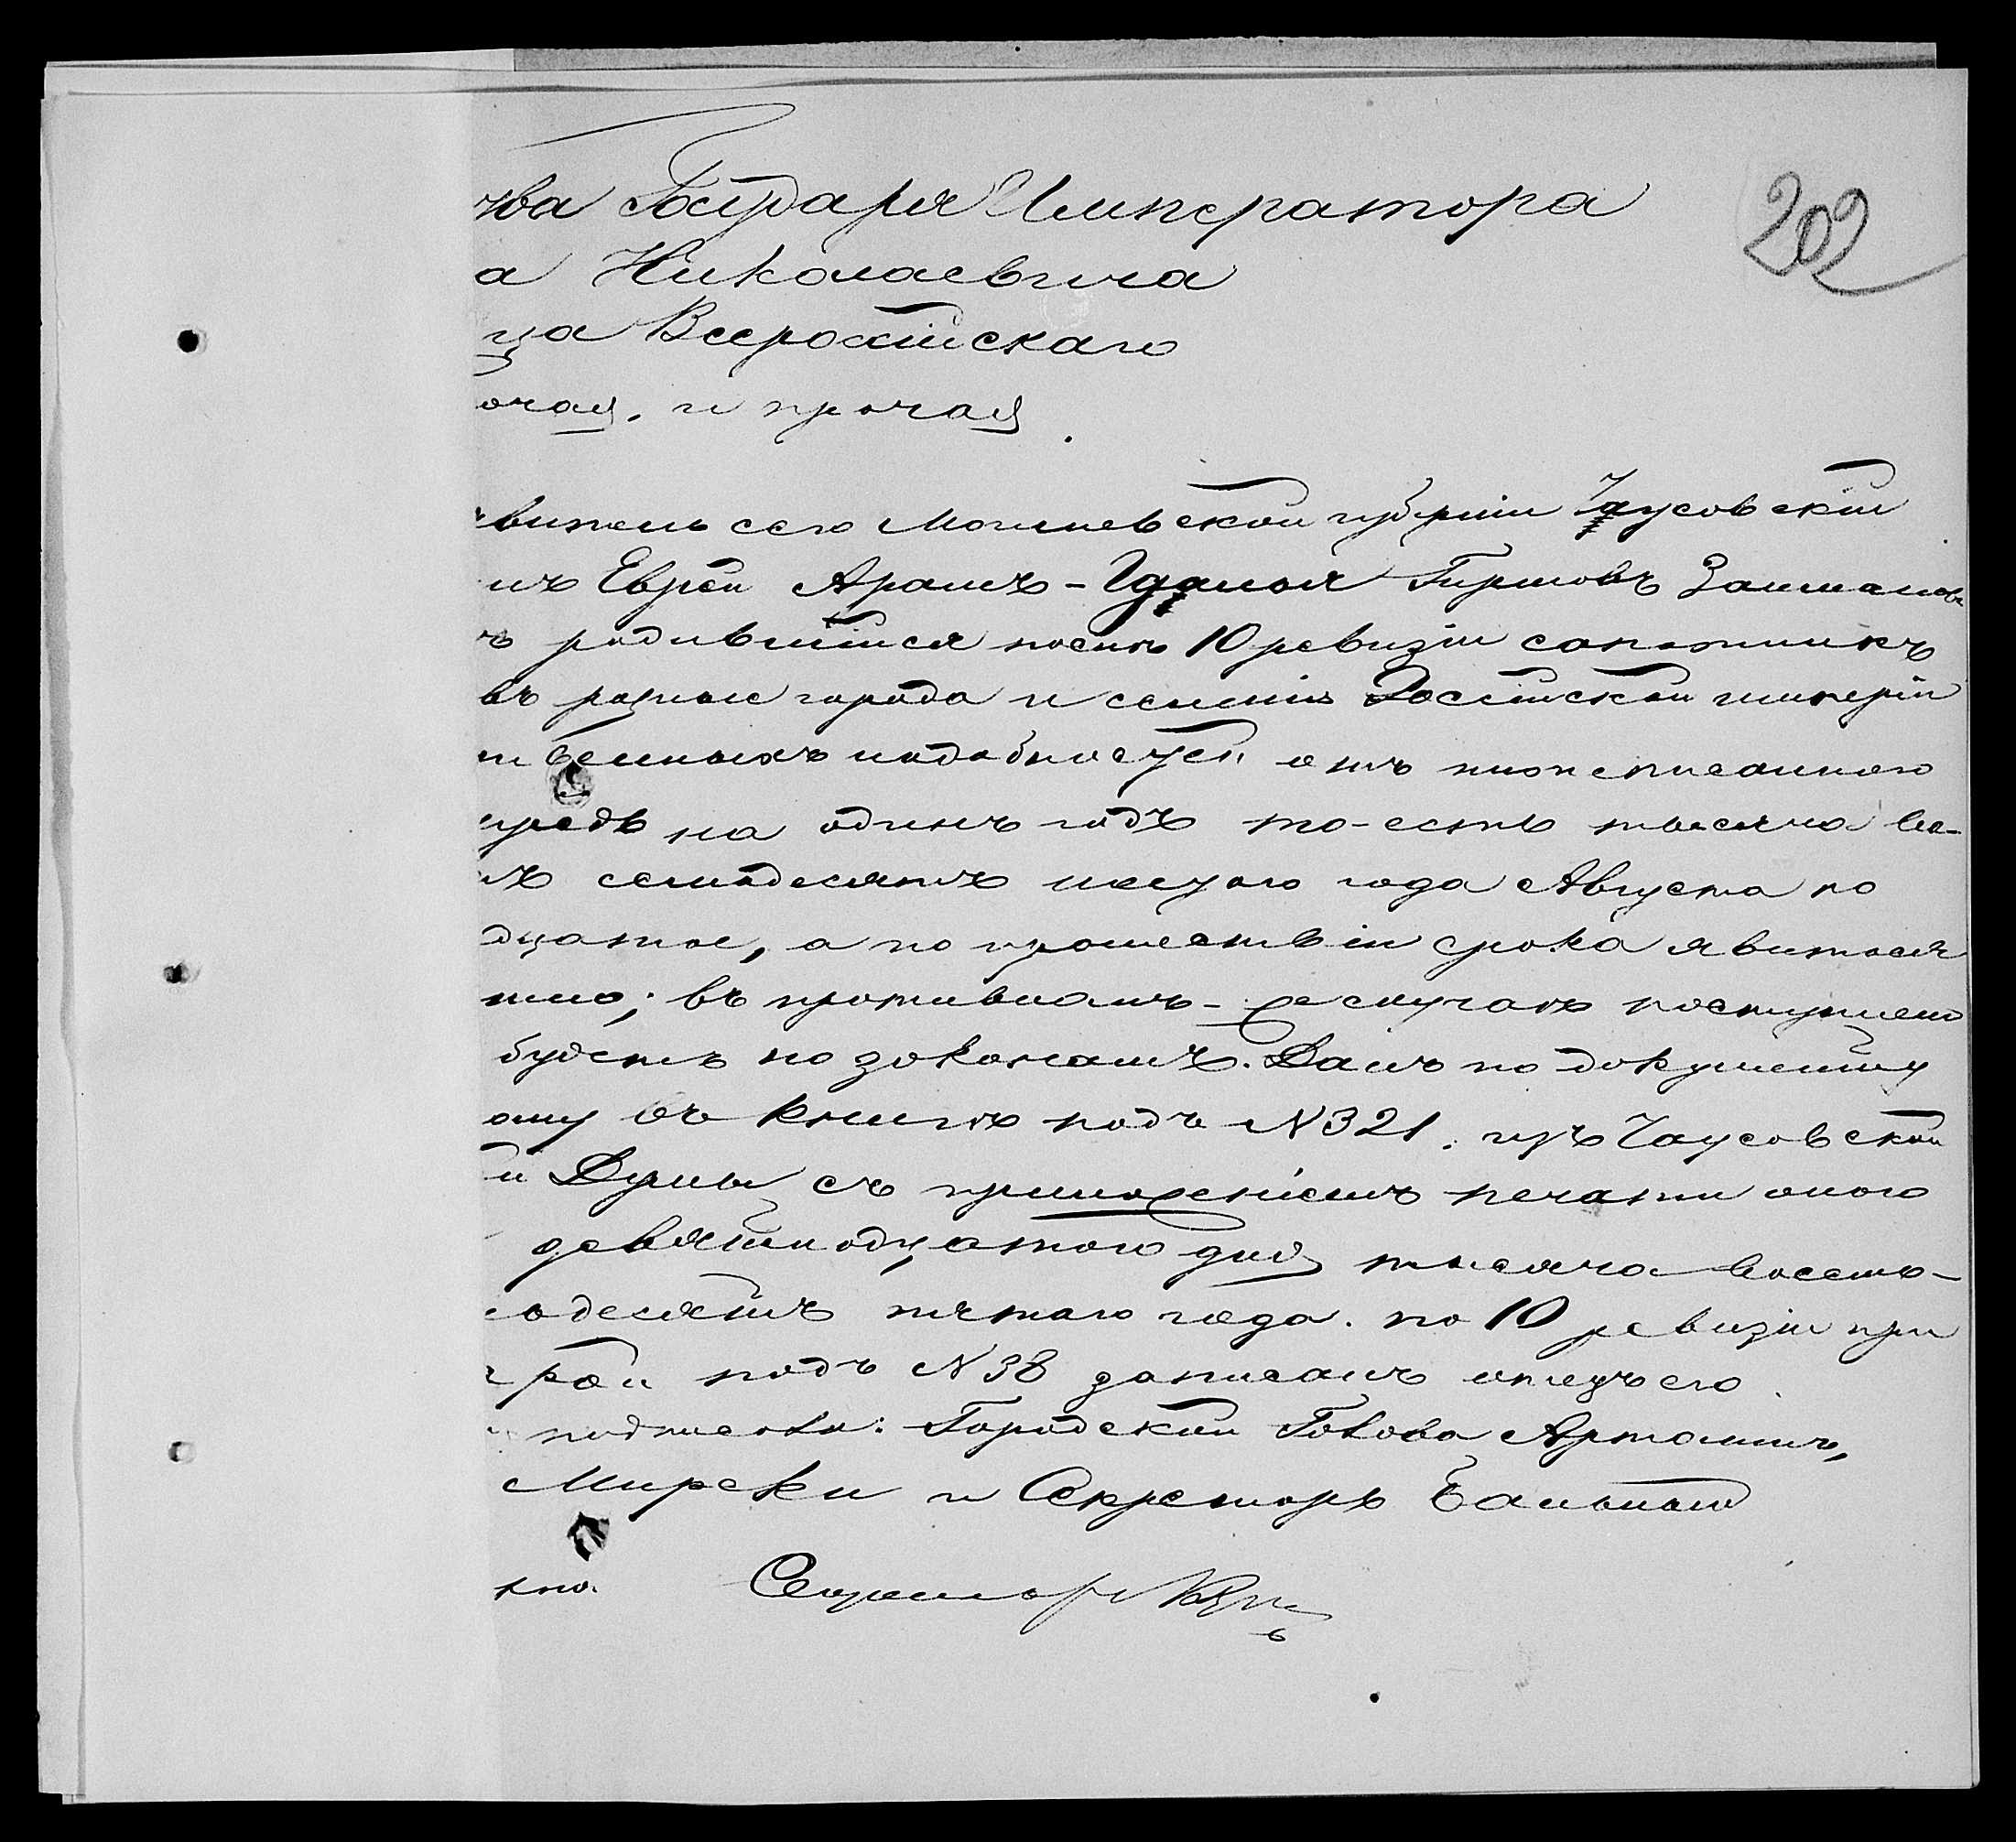 202
тва Государя Императора
а Николаевича
ца Всероссійскаго
очая. и прочая.
витель сего Могилевской губерніи Чаусовскій
нъ Еврей Арамъ-Гдалья Гиршовъ Залманов
ъ родившійся послѣ 10 ревизіи сапожникъ
въ разные города и селенія Россійской имперіи
твенныхъ надобностей отъ нижеписаннаго
предь на одинъ годъ то-есть тысяча во-
тъ семьдесятъ шестого года Августа по
дцатое, а по прошествіи срока явиться
тно; въ противномъ-же случаѣ поступлено
будетъ по законамъ. Данъ по документу
ому въ книгѣ подъ N 321. изъ Чаусовской
й Думы съ приложеніемъ печати оного
девятнадцатого дня тысяча восемь-
ьдесятъ пятаго года. по 10 ревизіи при
рой подъ N 38 записанъ отецъ его.
подписали: Городской Голова Артамин,
Мирски и Секретарь
рно. Секретарь